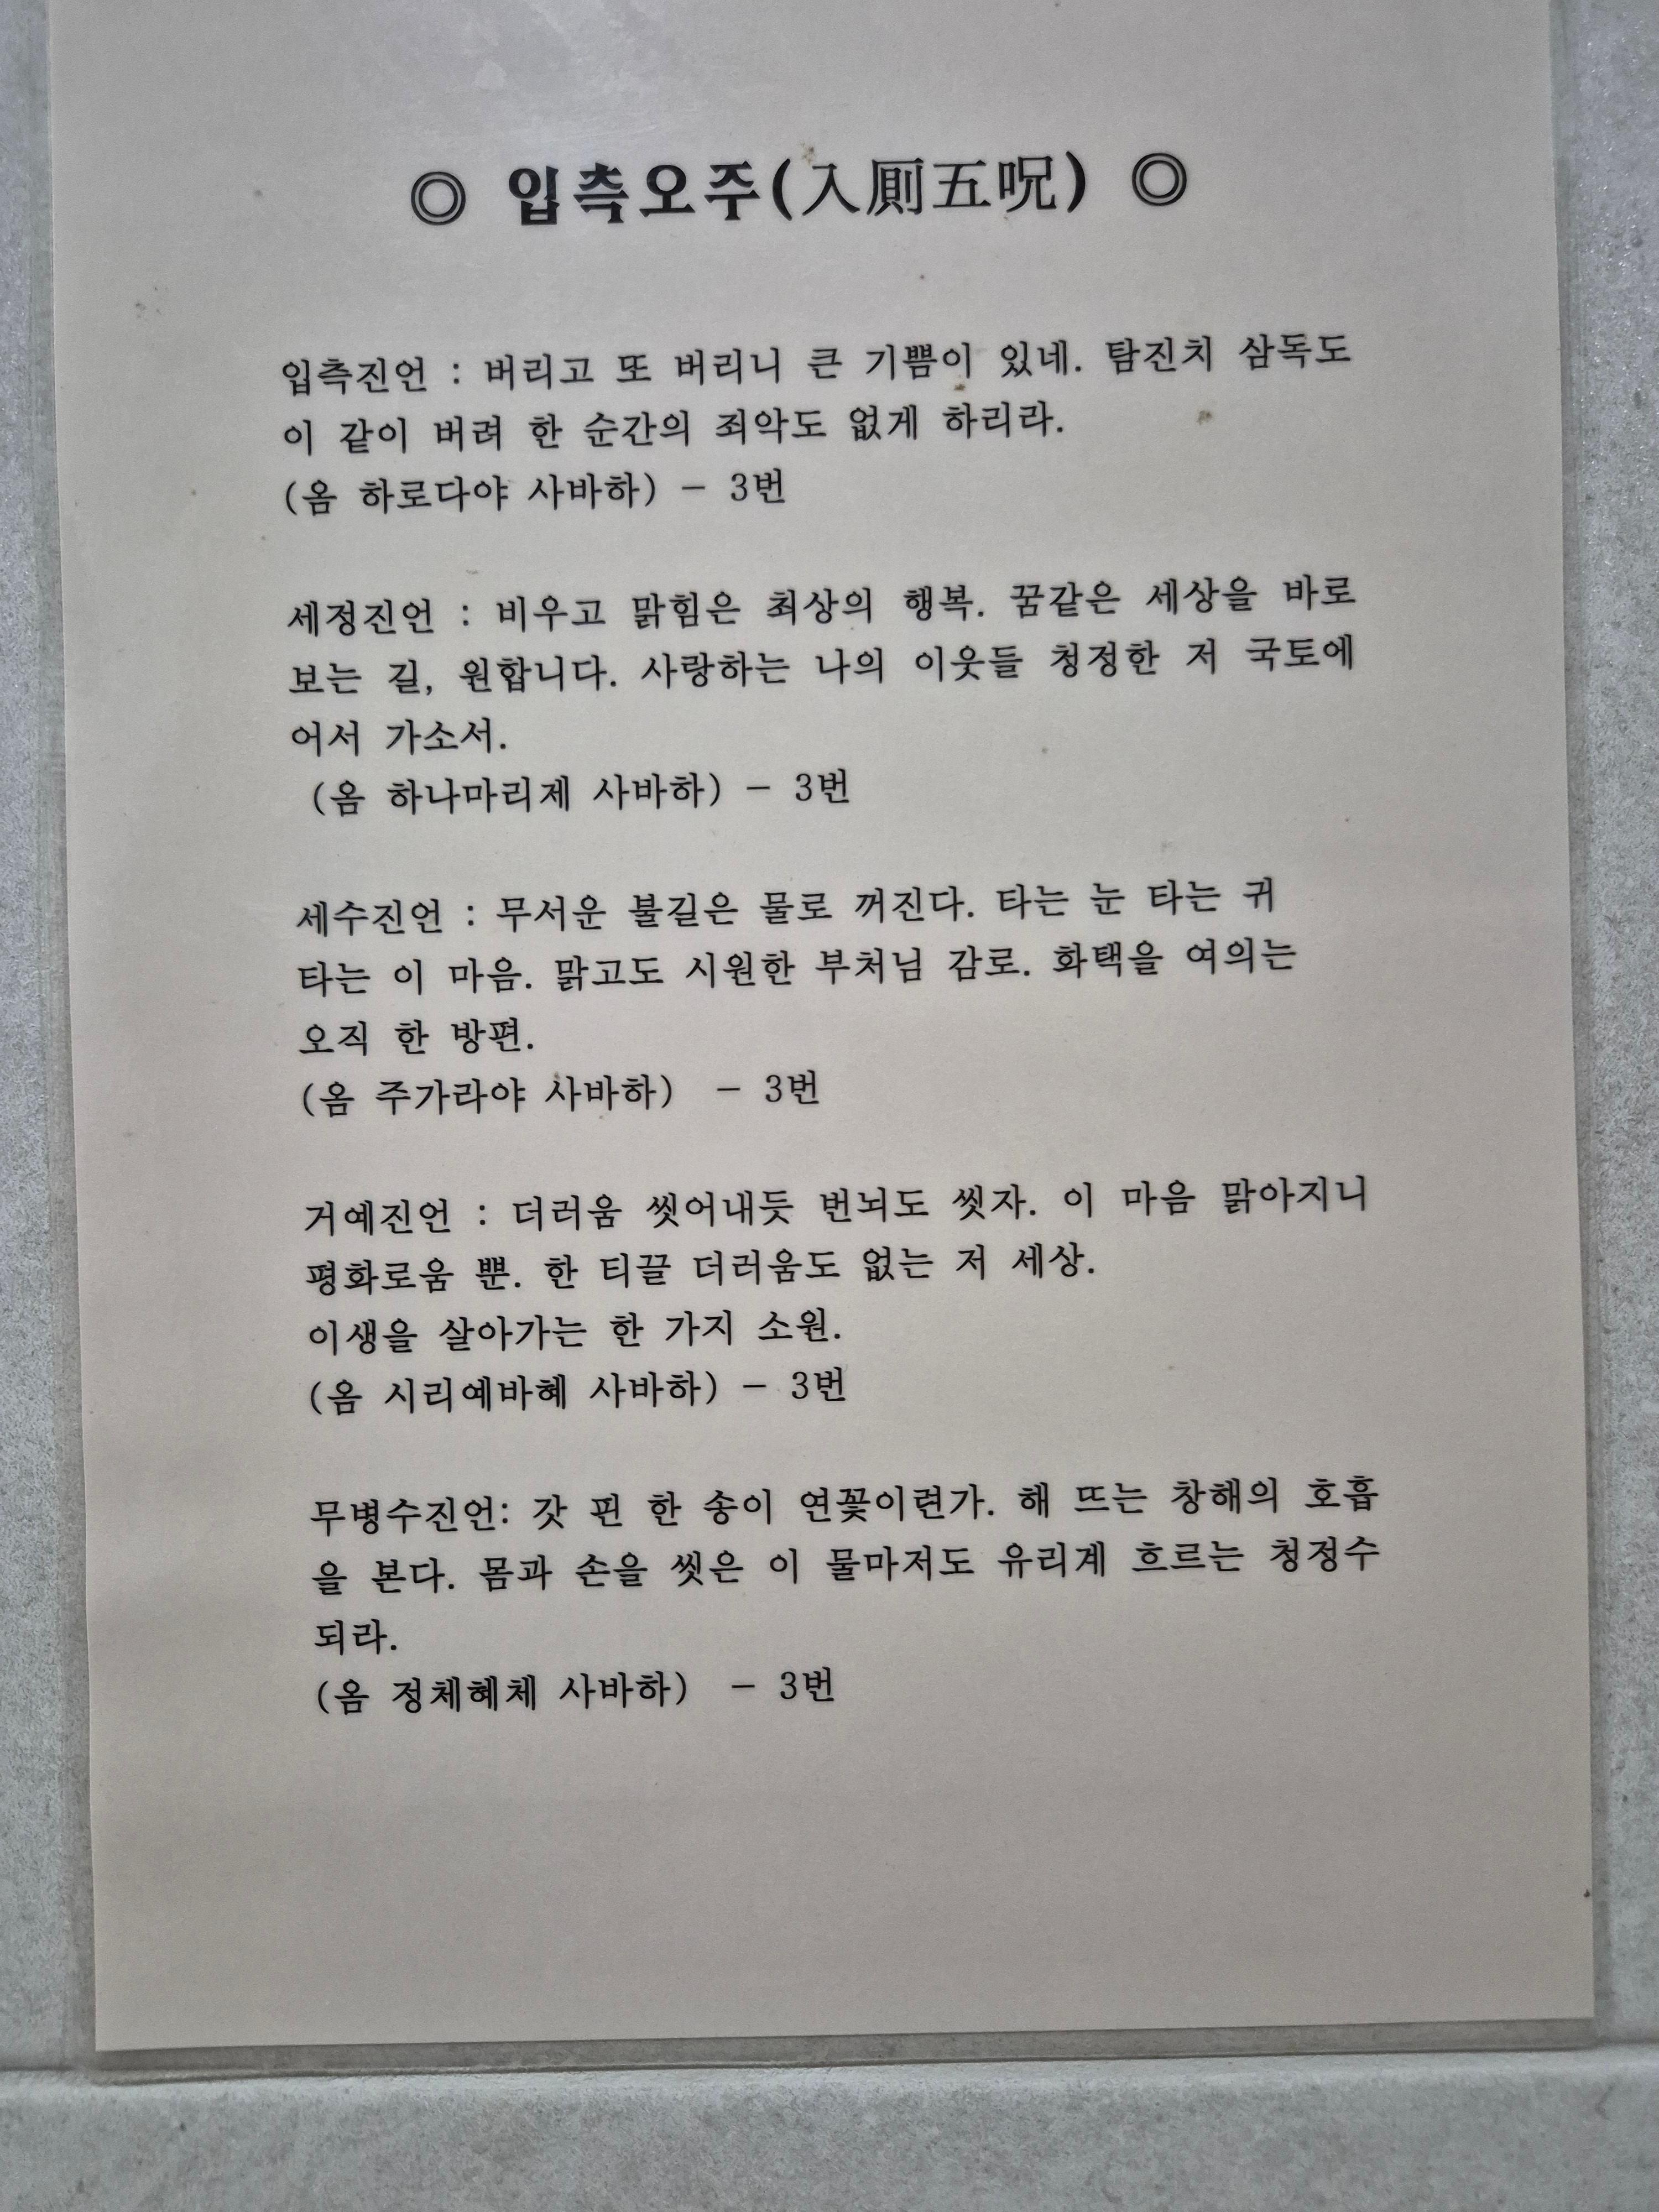 ◎ 입측오주(入厠五呪) ◎
입측진언 : 버리고 또 버리니 큰 기쁨이 있네. 탐진치 삼독도
이 같이 버려 한 순간의 죄악도 없게 하리라.
(옴 하로다야 사바하) - 3번
세정진언 : 비우고 맑힘은 최상의 행복. 꿈같은 세상을 바로
보는 길, 원합니다. 사랑하는 나의 이웃들 청정한 저 국토에
어서 가소서.
(옴 하나마리제 사바하) - 3번
세수진언 : 무서운 불길은 물로 꺼진다. 타는 눈 타는 귀
타는 이 마음. 맑고도 시원한 부처님 감로. 화택을 여의는
오직 한 방편.
(옴 주가라야 사바하) - 3번
거예진언 : 더러움 씻어내듯 번뇌도 씻자. 이 마음 맑아지니
평화로움 뿐. 한 티끌 더러움도 없는 저 세상.
이생을 살아가는 한 가지 소원.
(옴 시리예바혜 사바하) - 3번
무병수진언: 갓 핀 한 송이 연꽃이련가. 해 뜨는 창해의 호흡
을 본다. 몸과 손을 씻은 이 물마저도 유리계 흐르는 청정수
되라.
(옴 정체혜체 사바하) - 3번